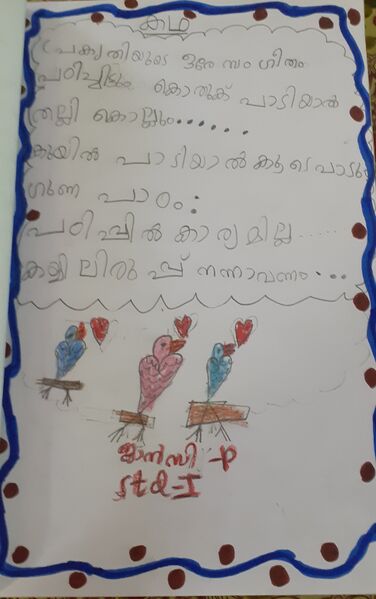 കഥ
പ്രകൃതിയുടെ ഒരേ സംഗീതം
പഠിച്ചിട്ടും കൊതുക് പാടിയാൽ
തല്ലി കൊല്ലും......
കുയിൽ പാടിയാൽ കൂടെ പാടും
ഗുണ പാഠം:
പഠിപ്പിൽ കാര്യമില്ല .....
കയ്യിലിരുപ്പ് നന്നാവണം...
ജാൻസി -P
std-I